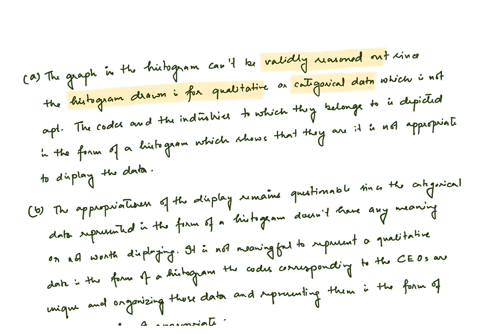 (a) The graph in the histogram can't be validly reasoned out since
the histogram drawn is for qualitative or categorical data which is not
apt. The codes and the industries to which they belong to is depicted
in the form of a histogram which shows that they are it is not appropriate
to display the data.
(b) The appropriateness of the display remains questionable since the categorical
data represented in the form of a histogram doesn't have any meaning
or not worth displaying. It is not meaningful to represent a qualitative
data in the form of a histogram the codes corresponding to the CEOs are
unique and organizing those data and representing them in the form of